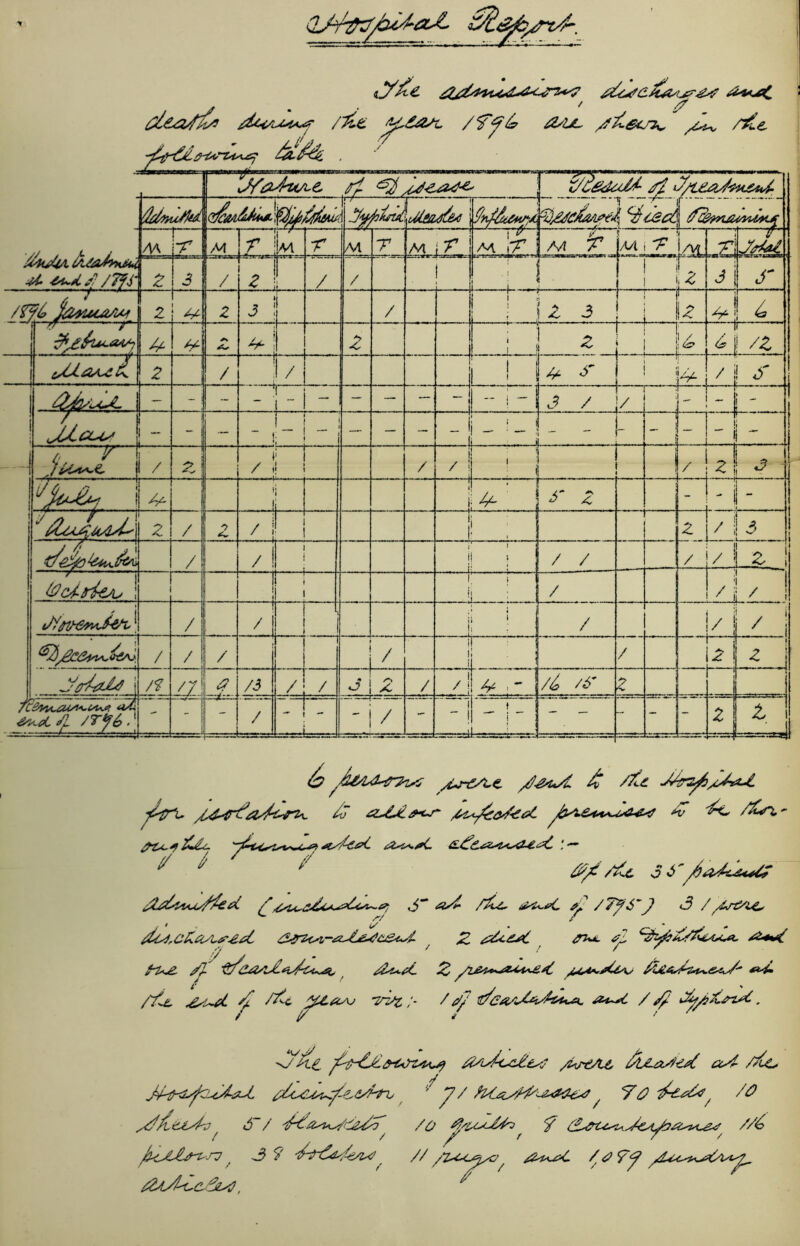 Hospital Report.
The admissions, discharges and
deaths during the year 1896 are shewn in the
following table.
Nature of Disease Result of Treatment
Admitted Scarlatina Diphtheria Typhoid Measles Influenza Discharged Died Remaining
M F M F M F M F M F M F M F M F M F Total
Under treatment
at end of 1895 2 3 1 2 1 1 2 3 5
1896 January 2 4 2 3 1 2 3 2 4 6
February 4 4 2 4 2 2 6 6 12
March 2 1 1 4 5 4 1 5
April - - - - - - - - - - - - 3 1 1 - - -
May - - - - - - - - - - - - - - - - - - -
June 1 2 1 1 1 1 2 3
July 4 4 5 2 - - -
August 2 1 2 1 2 1 3
September 1 1 1 1 1 1 2
October 1 1 1
November 1 1 1 1 1
December 1 1 1 1 1 2 2
Totals 18 17 9 13 1 1 3 2 1 1 4 - 16 15 2
Remaining at
end of 1896. - - - 1 - - - 1 - - - - - - - - 2 2
6 persons were sent to the Hospital
for isolation to allow infected premises to be thor-
oughly fumigated and cleansed :—
Of the 35 patients
admitted (including 5 at the end of 1895) 31 were
discharged convalescent, 2 died, one of Diphtheria and
one of Scarlatina, and 2 remained under treatment at
the end of the year viz:- 1 of Scarlatina and 1 of Typhoid.
The following articles were treated at the
Hospital disinfector, 71 mattresses, 90 beds, 10
sheets, 51 blankets, 10 quilts, 9 counterpanes, 116
pillows, 38 bolsters, 11 rugs, and 1089 sundry
articles.